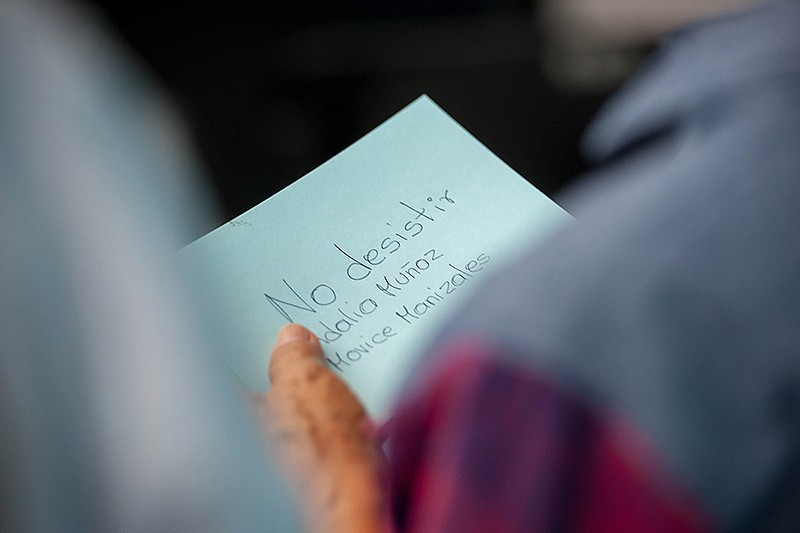 No desistir
Muñoz
Movice Manizales